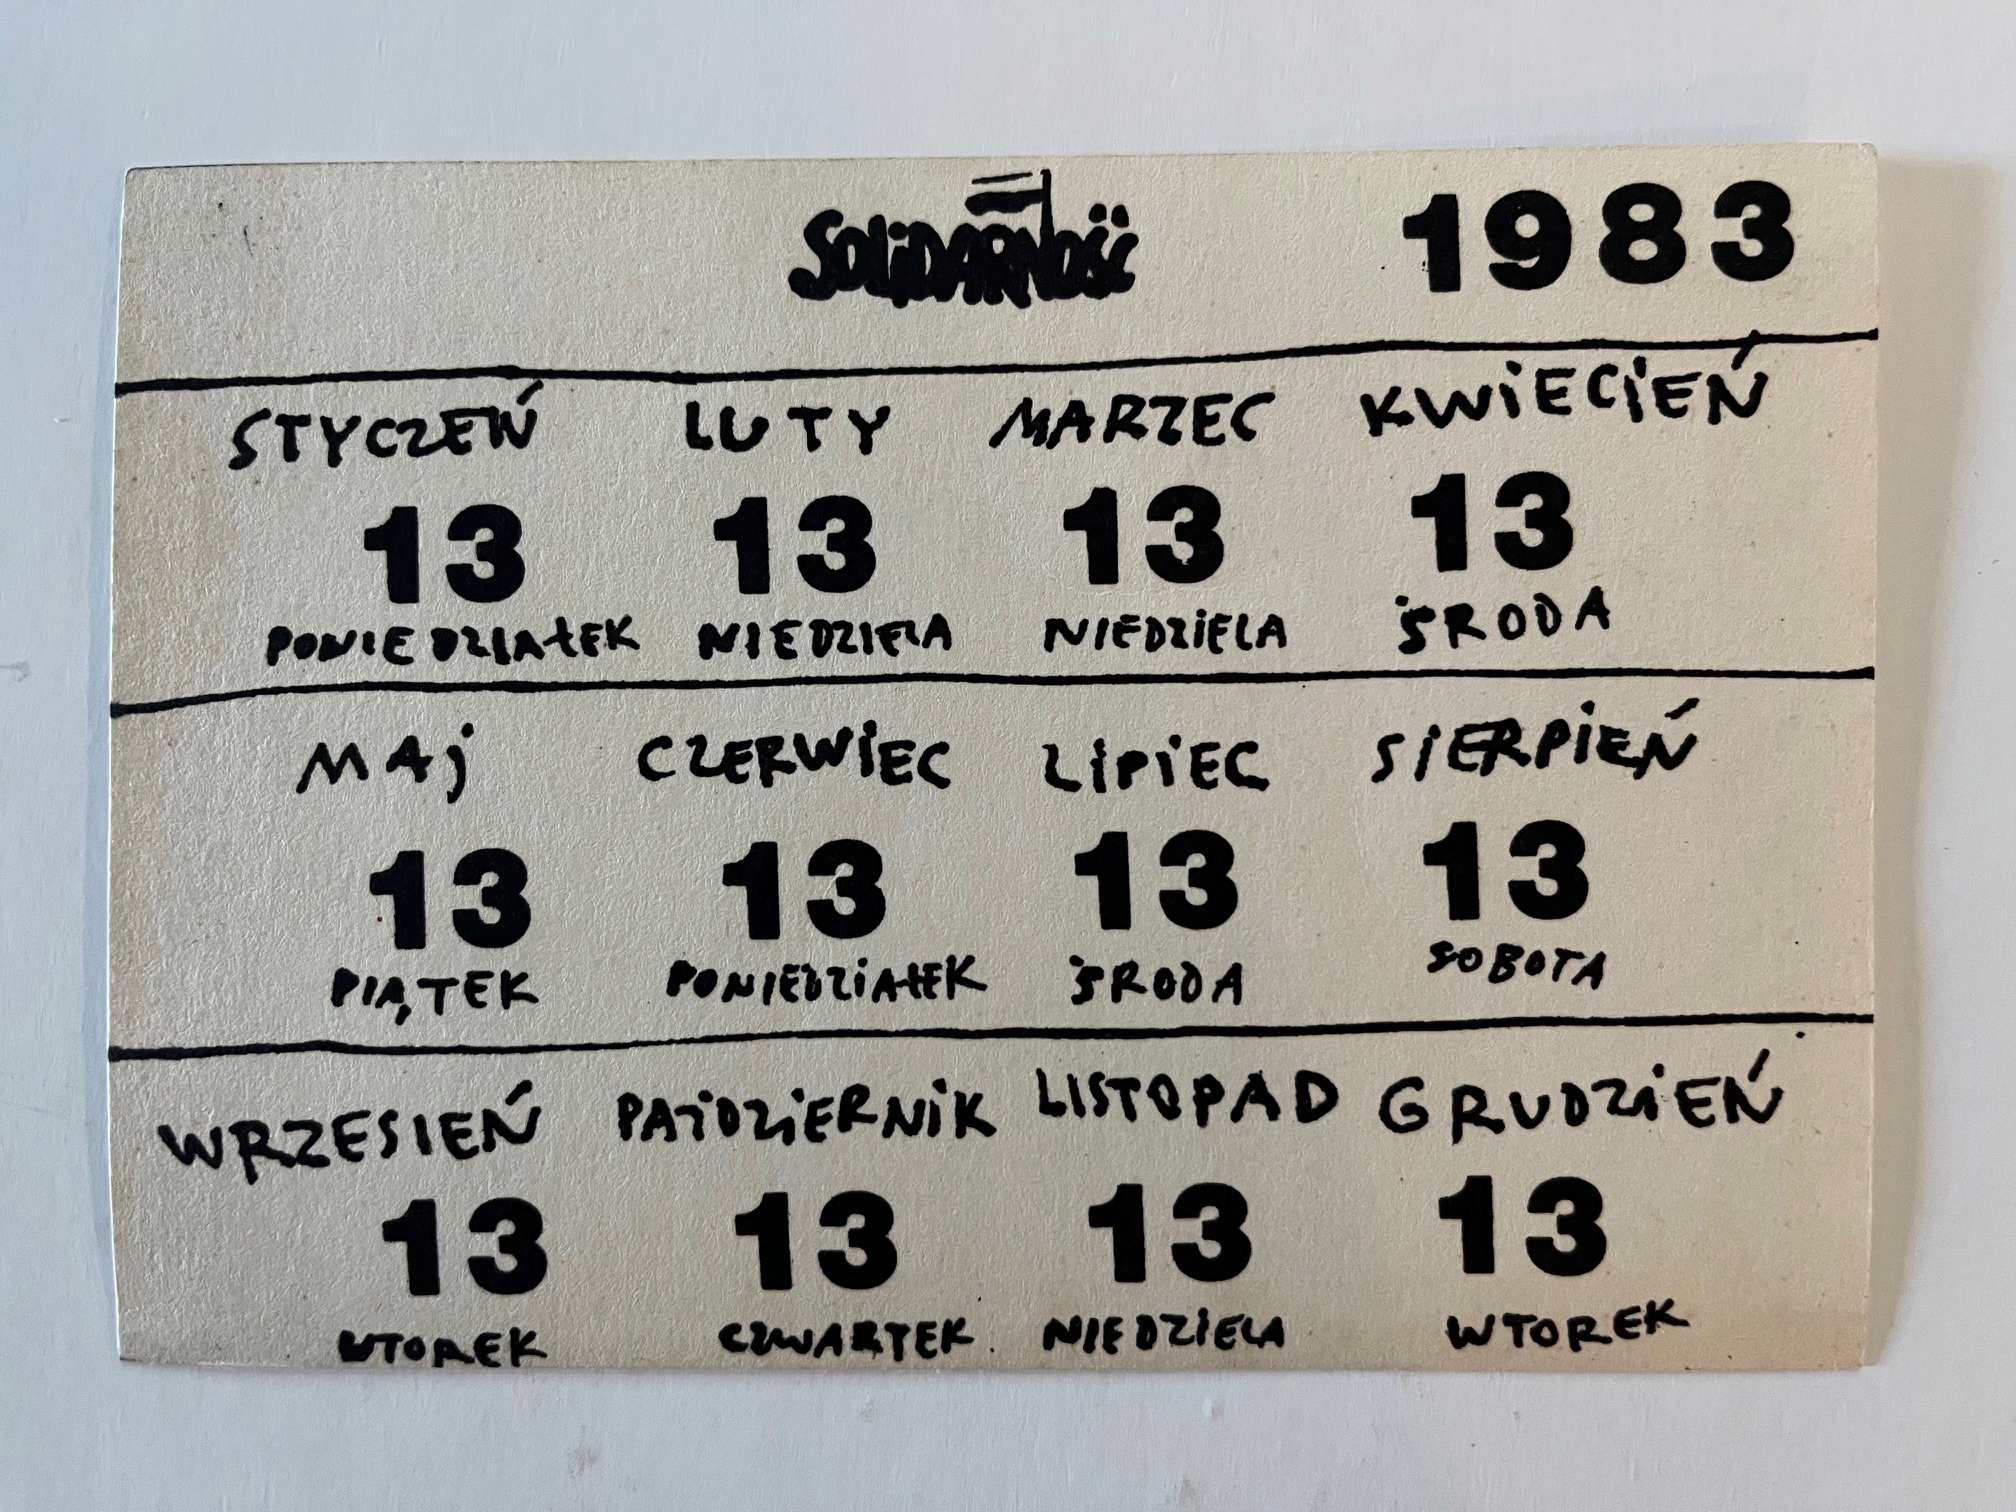 SOLIDARNOŚĆ 1983
STYCZEŃ LUTY MARZEC KWIECIEŃ
13 13 13 13
PONIEDZIAŁEK NIEDZIELA NIEDZIELA ŚRODA
MAJ CZERWIEC LIPIEC SIERPIEŃ
13 13 13 13
PIĄTEK PONIEDZIAŁEK ŚRODA SOBOTA
WRZESIEŃ PAŹDZIERNIK LISTOPAD GRUDZIEŃ
13 13 13 13
WTOREK CZWARTEK NIEDZIELA WTOREK